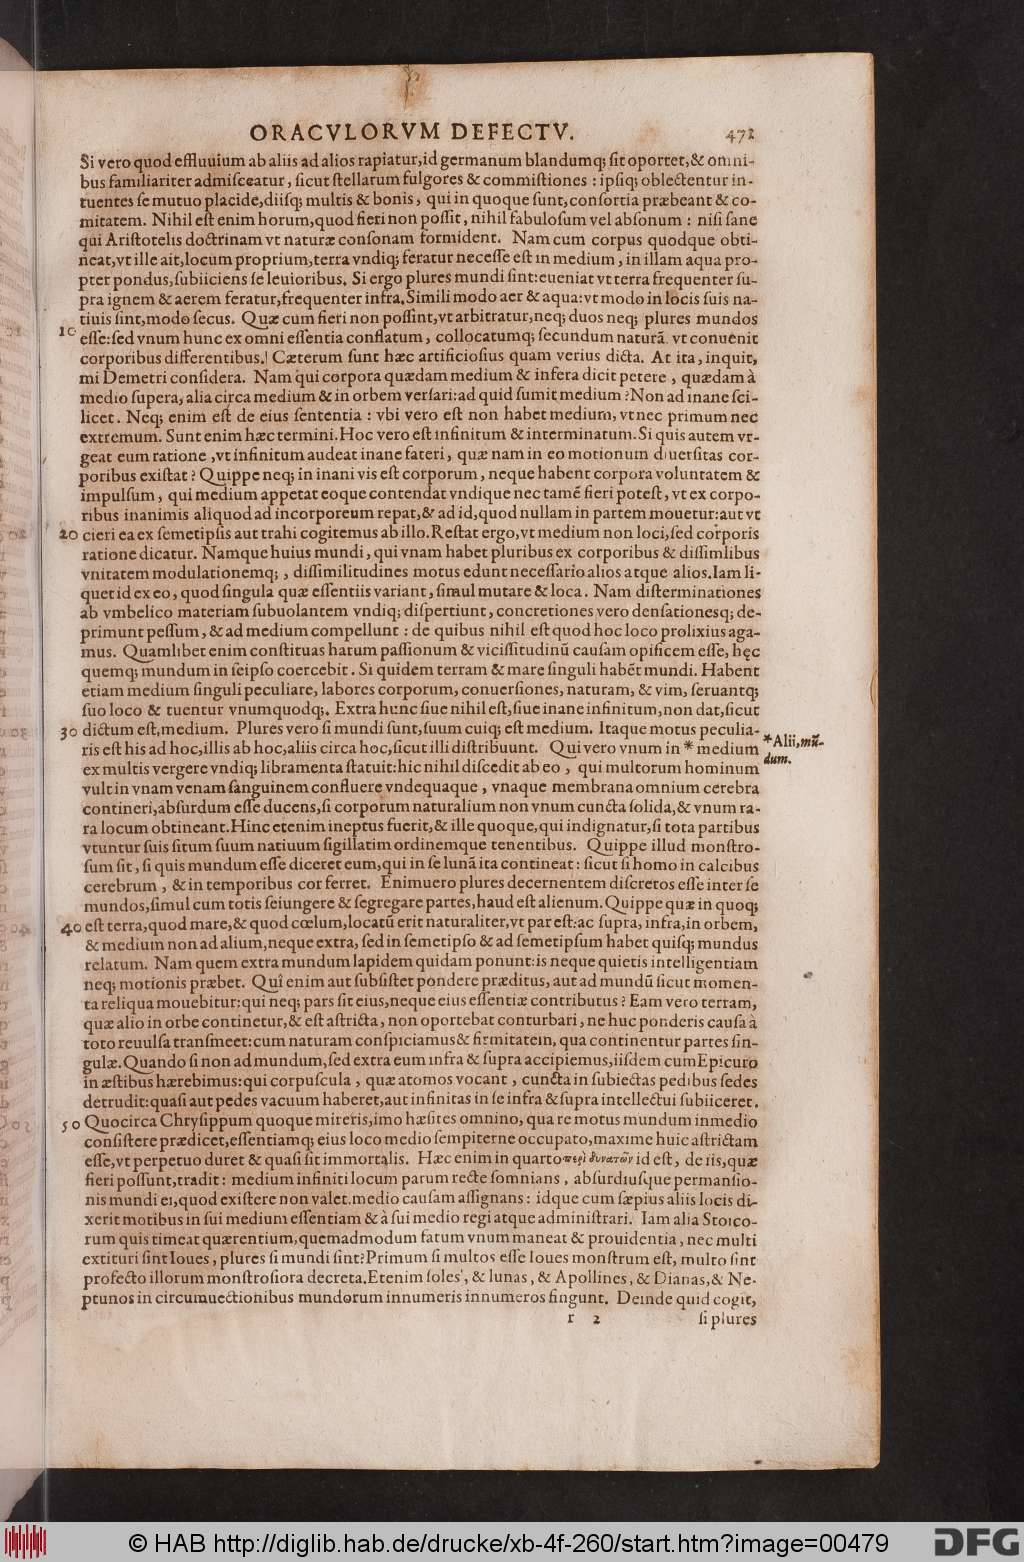 ORACVLORVM DEFECTV. 471
Si vero quod effluuium ab aliis ad alios rapiatur, id germanum blandumq; sit oportet, & omni-
bus familiariter admisceatur, sicut stellarum fulgores & commistiones: ipsiq; oblectentur in-
tuentes se mutuo placide, diisq; multis & bonis, qui in quoque sunt, consortia præbeant & co-
mitatem. Nihil est enim horum, quod fieri non possit, nihil fabulosum vel absonum: nisi sane
qui Aristotelis doctrinam vt naturæ consonam formident. Nam cum corpus quodque obti-
neat, vt ille ait, locum proprium, terra vndiq; feratur necesse est in medium, in illam aqua pro-
pter pondus, subiiciens se leuioribus. Si ergo plures mundi sint: eueniat vt terra frequenter su-
pra ignem & aerem feratur, frequenter infra. Simili modo aer & aqua: vt modo in locis suis na-
tiuis sint, modo secus. Quæ cum fieri non possint, vt arbitratur, neq; duos neq; plures mundos
10 esse: sed vnum hunc ex omni essentia conflatum, collocatumq; secundum naturã. vt conuenit
corporibus differentibus. Cæterum sunt hæc artificiosius quam verius dicta. At ita, inquit,
mi Demetri considera. Nam qui corpora quædam medium & infera dicit petere, quædam à
medio supera, alia circa medium & in orbem versari: ad quid sumit medium? Non ad inane sci-
licet. Neq; enim est de eius sententia: vbi vero est non habet medium, vt nec primum nec
extremum. Sunt enim hæc termini. Hoc vero est infinitum & interminatum. Si quis autem vr-
geat eum ratione, vt infinitum audeat inane fateri, quæ nam in eo motionum diuersitas cor-
poribus existat? Quippe neq; in inani vis est corporum, neque habent corpora voluntatem &
impulsum, qui medium appetat eoque contendat vndique nec tamẽ fieri potest, vt ex corpo-
ribus inanimis aliquod ad incorporeum repat, & ad id, quod nullam in partem mouetur: aut vt
20 cieri ea ex semetipsis aut trahi cogitemus ab illo. Restat ergo, vt medium non loci, sed corporis
ratione dicatur. Namque huius mundi, qui vnam habet pluribus ex corporibus & dissimlibus
vnitatem modulationemq;, dissimilitudines motus edunt necessario alios atque alios. Iam li-
quet id ex eo, quod singula quæ essentiis variant, simul mutare & loca. Nam disterminationes
ab vmbelico materiam subuolantem vndiq; dispertiunt, concretiones vero densationesq; de-
primunt pessum, & ad medium compellunt: de quibus nihil est quod hoc loco prolixius aga-
mus. Quamlibet enim constituas harum passionum & vicissitudinũ causam opificem esse, hęc
quemq; mundum in seipso coercebit. Si quidem terram & mare singuli habẽt mundi. Habent
etiam medium singuli peculiare, labores corporum, conuersiones, naturam, & vim, seruantq;
suo loco & tuentur vnumquodq;. Extra hunc siue nihil est, siue inane infinitum, non dat, sicut
30 dictum est, medium. Plures vero si mundi sunt, suum cuiq; est medium. Itaque motus peculia-
ris est his ad hoc, illis ab hoc, aliis circa hoc, sicut illi distribuunt. Qui vero vnum in * medium
*Alii, mũ-
dum.
ex multis vergere vndiq; libramenta statuit: hic nihil discedit ab eo, qui multorum hominum
vult in vnam venam sanguinem confluere vndequaque, vnaque membrana omnium cerebra
contineri, absurdum esse ducens, si corporum naturalium non vnum cuncta solida, & vnum ra-
ra locum obtineant. Hinc etenim ineptus fuerit, & ille quoque, qui indignatur, si tota partibus
vtuntur suis situm suum natiuum sigillatim ordinemque tenentibus. Quippe illud monstro-
sum sit, si quis mundum esse diceret eum, qui in se lunã ita contineat: sicut si homo in calcibus
cerebrum, & in temporibus cor ferret. Enimuero plures decernentem discretos esse inter se
mundos, simul cum totis seiungere & segregare partes, haud est alienum. Quippe quæ in quoq;
40 est terra, quod mare, & quod cœlum, locatũ erit naturaliter, vt par est: ac supra, infra, in orbem,
& medium non ad alium, neque extra, sed in semetipso & ad semetipsum habet quisq; mundus
relatum. Nam quem extra mundum lapidem quidam ponunt: is neque quietis intelligentiam
neq; motionis præbet. Quî enim aut subsistet pondere præditus, aut ad mundũ sicut momen-
ta reliqua mouebitur: qui neq; pars sit eius, neque eius essentiæ contributus? Eam vero terram,
quæ alio in orbe continetur, & est astricta, non oportebat conturbari, ne huc ponderis causa à
toto reuulsa transmeet: cum naturam conspiciamus & firmitatem, qua continentur partes sin-
gulæ. Quando si non ad mundum, sed extra eum infra & supra accipiemus, iisdem cum Epicuro
in æstibus hærebimus: qui corpuscula, quæ atomos vocant, cuncta in subiectas pedibus sedes
detrudit: quasi aut pedes vacuum haberet, aut infinitas in se infra & supra intellectui subiiceret.
50 Quocirca Chrysippum quoque mireris, imo hæsites omnino, qua re motus mundum in medio
consistere prædicet, essentiamq; eius loco medio sempiterne occupato, maxime huic astrictam
esse, vt perpetuo duret & quasi sit immortalis. Hæc enim in quarto περὶ δυνατῶν id est, de iis, quæ
fieri possunt, tradit: medium infiniti locum parum recte somnians, absurdiusque permansio-
nis mundi ei, quod existere non valet. medio causam assignans: idque cum sæpius aliis locis di-
xerit motibus in sui medium essentiam & à sui medio regi atque administrari. Iam alia Stoico-
rum quis timeat quærentium, quemadmodum fatum vnum maneat & prouidentia, nec multi
extituri sint Ioues, plures si mundi sint? Primum si multos esse Ioues monstrum est, multo sint
profecto illorum monstrosiora decreta. Etenim soles, & lunas, & Apollines, & Dianas, & Ne-
ptunos in circumuectionibus mundorum innumeris innumeros fingunt. Deinde quid cogit,
r 2 si plures
© HAB http://diglib.hab.de/drucke/xb-4f-260/start.htm?image=00479
DFG